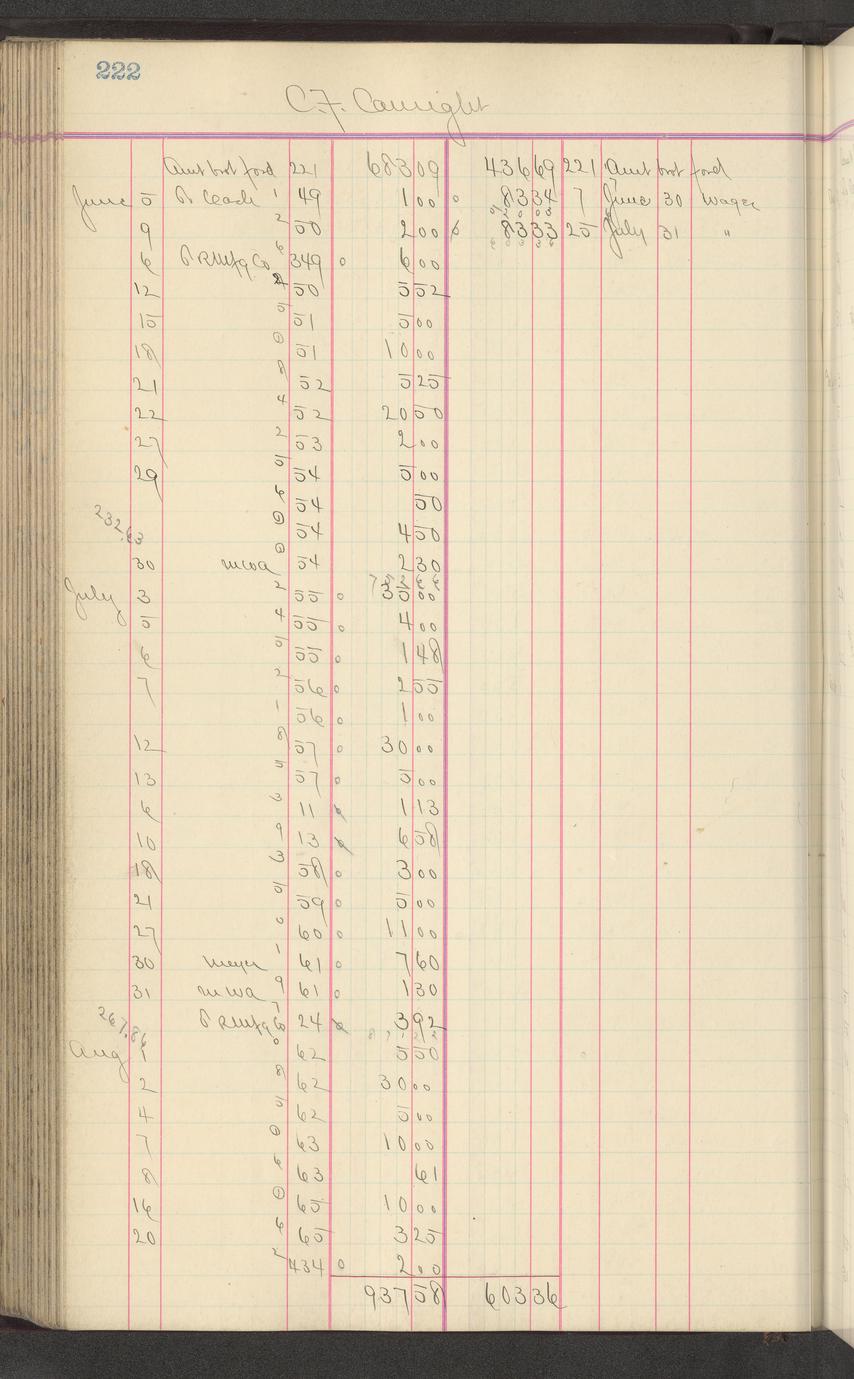 222
C.F.
Amt brot ford 221 683 09 436 69 221 Amt brot ford
June 5 1 49 1 00 o 83 34 7 June 30 Wages
9 2 50 2 00 83 33 25 July 31 "
6 6 349 o 6 00
12 50 5 52
15 5 51 5 00
18 0 51 10 00
21 8 52 5 25
22 4 52 20 50
27 2 53 2 00
29 5 54 5 00
6 54 50
232.63 0 54 4 50
30 mwa 0 54 2 30
July 3 2 55 o 35 00
5 4 55 o 4 00
6 5 55 o 1 48
7 2 56 o 2 55
1 56 o 1 00
12 8 57 o 30 00
13 5 57 o 5 00
6 3 11 1 13
10 9 13 6 58
18 3 58 o 3 00
21 5 59 o 5 00
27 0 60 o 11 00
30 Meyer 1 61 o 7 60
31 mwa 9 61 o 1 30
267.86 7 24 3 92
Aug 1 0 62 5 50
2 8 62 30 00
4 5 62 5 00
7 0 63 10 00
8 6 63 61
16 0 65 10 00
20 6 65 3 25
2 434 o 2 00
937 58 603 36